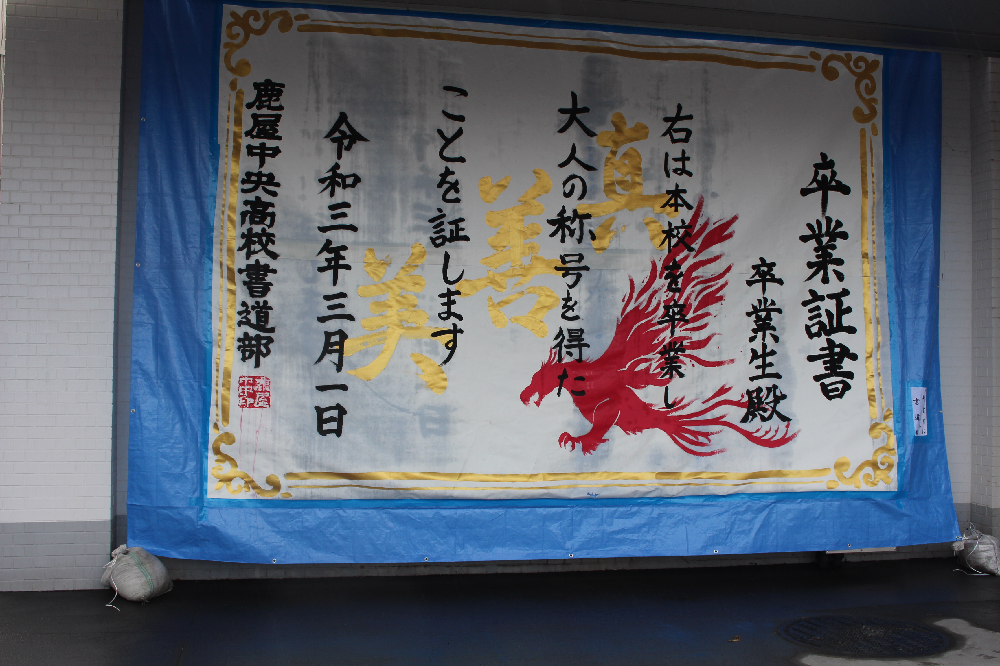 卒業証書
卒業生殿
右は本校を卒業し
大人の称号を得た
ことを証します
真善美
令和三年三月一日
鹿屋中央高校書道部